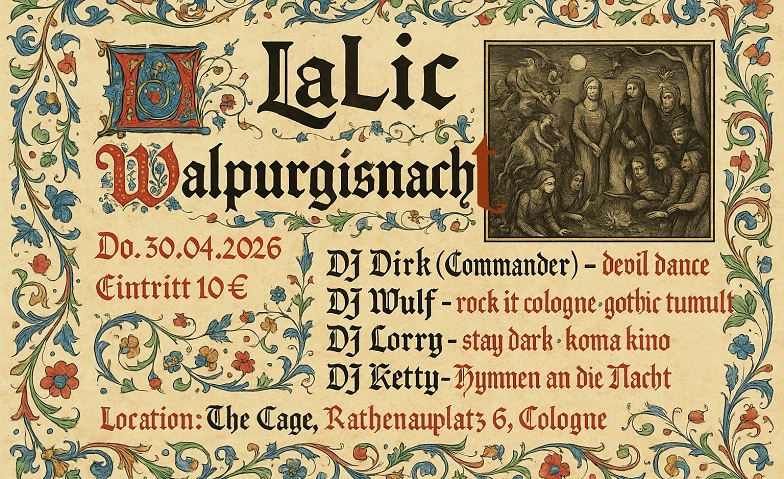 LaLic
Walpurgisnacht
Do. 30.04.2026
Eintritt 10€
DJ Dirk (Commander) – devil dance
DJ Wulf - rock it cologne·gothic tumult
DJ Lorry - stay dark · koma kino
DJ Ketty- Hymnen an die Nacht
Location: The Cage, Rathenauplatz 6, Cologne